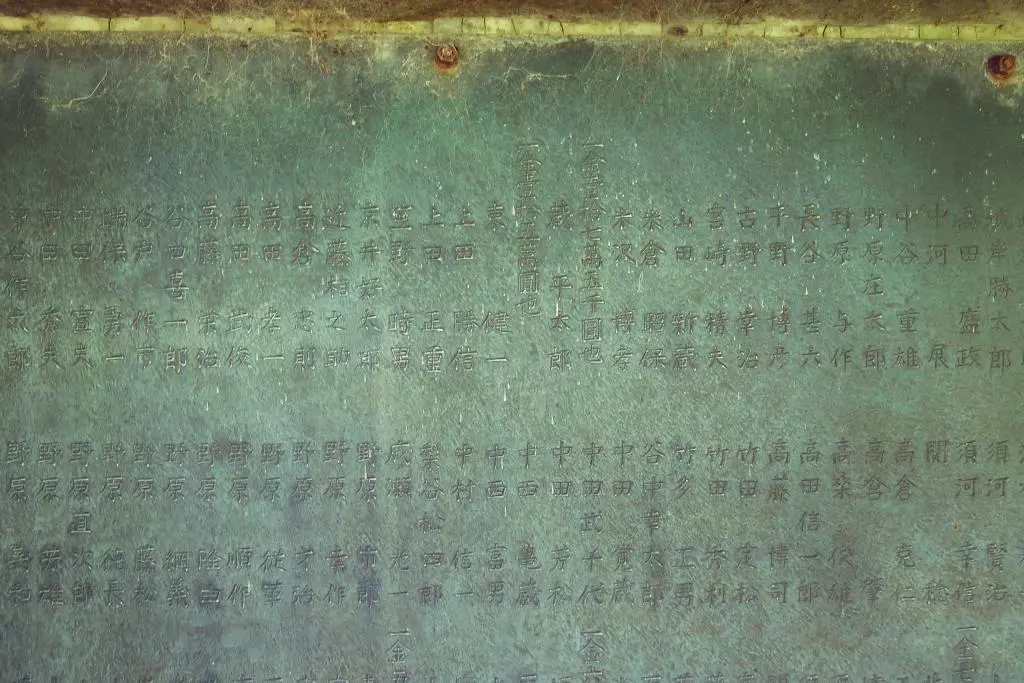 岸勝太郎
高田盛政
中河展
中谷重雄
野原庄太郎
野原与作
長谷甚六
平野博彦
古野幸治
宮崎精夫
山田新蔵
米倉昭保
米沢博孝
一金壹拾七萬五千圓也
蔵平太郎
一金壹拾二萬圓也
東健一
上田勝信
上田正重
笠野時男
京井好太郎
近藤相之助
高倉忠郎
高田孝一
高田武俊
高藤栄治
谷田喜一郎
谷戸作市
端保勇一
中田宣夫
中田秀夫
谷作太郎
須河賢治
須河幸信
関稔
高倉克仁
高倉肇
高桑俊雄
高田信一郎
高藤博司
竹田定松
竹田秀利
竹多正男
谷中幸太郎
中田覚蔵
中田武千代
中田芳松
中西亀蔵
中西富男
中村信一
梨谷松四郎
広瀬光一
野原市郎
野原幸作
野原才治
野原従革
野原順作
野原隆由
野原綱義
野原藤松
野原徳長
野原直次郎
野原芳雄
野原美和
一金
一金
一金